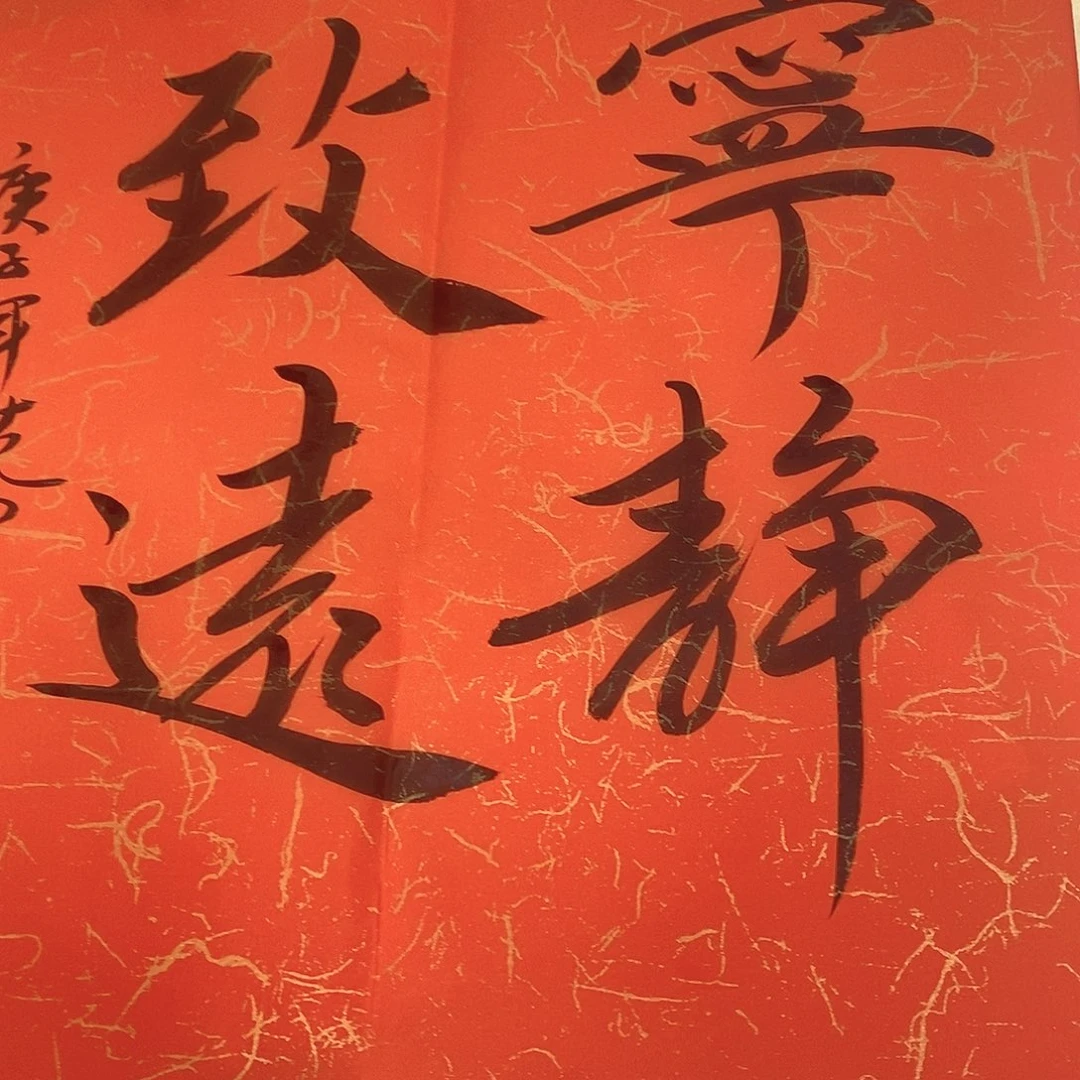 寧靜
致遠
庚子年